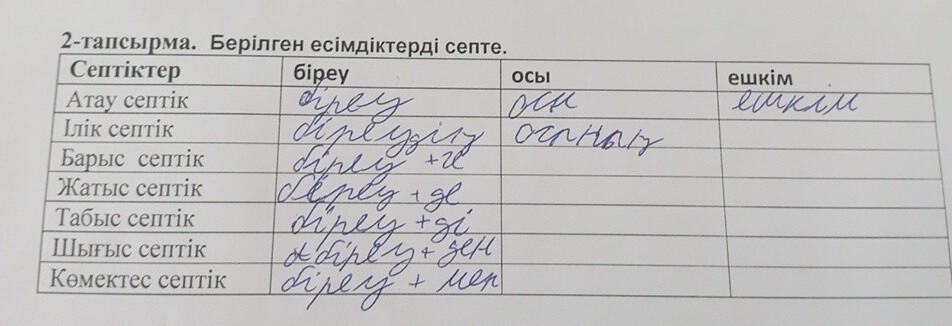 2-тапсырма. Берілген есімдіктерді септе.
Септіктер біреу осы ешкім
Атау септік біреу осы ешкім
Ілік септік біреудің осының
Барыс септік біреу +ге
Жатыс септік біреу + де
Табыс септік біреу +ді
Шығыс септік біреу + ден
Көмектес септік біреу + мен